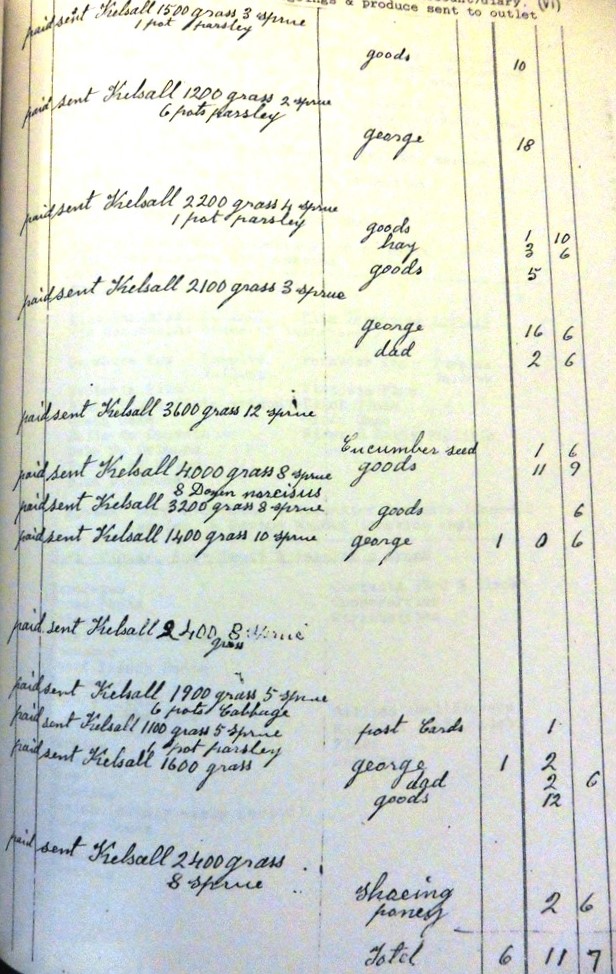 ings & produce sent to outlet (vi)
paid sent Kelsall 1500 grass 3 sprue
1 pot parsley
goods 10
paid sent Kelsall 1200 grass 2 sprue
6 pots parsley
george 18
paid sent Kelsall 2200 grass 4 sprue
1 pot parsley
goods 1 10
hay 3 6
goods 5
paid sent Kelsall 2100 grass 3 sprue
george 16 6
dad 2 6
paid sent Kelsall 3600 grass 12 sprue
Cucumber seed 1 6
paid sent Kelsall 4000 grass 8 sprue goods 11 9
8 Dozen narcisus
paid sent Kelsall 3200 grass 8 sprue goods 6
paid sent Kelsall 1400 grass 10 sprue george 1 0 6
paid sent Kelsall 2400 8 sprue
grass
paid sent Kelsall 1900 grass 5 sprue
6 pots Cabbage
paid sent Kelsall 1100 grass 5 sprue post Cards 1
6 pot parsley
paid sent Kelsall 1600 grass george 1 2
dad 2 6
goods 12
paid sent Kelsall 2400 grass
8 sprue
shoeing
poney 2 6
Total 6 11 7